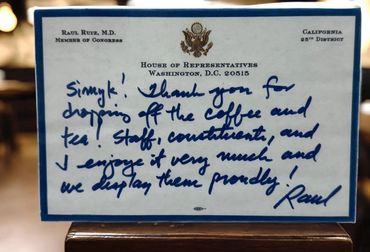 RAUL RUIZ, M.D.
MEMBER OF CONGRESS
CALIFORNIA
25TH DISTRICT
HOUSE OF REPRESENTATIVES
WASHINGTON, D.C. 20515
Thank you for
dropping off the coffee and
tea! Staff, constituents, and
I enjoye it very much and
we display them proudly!
Raul